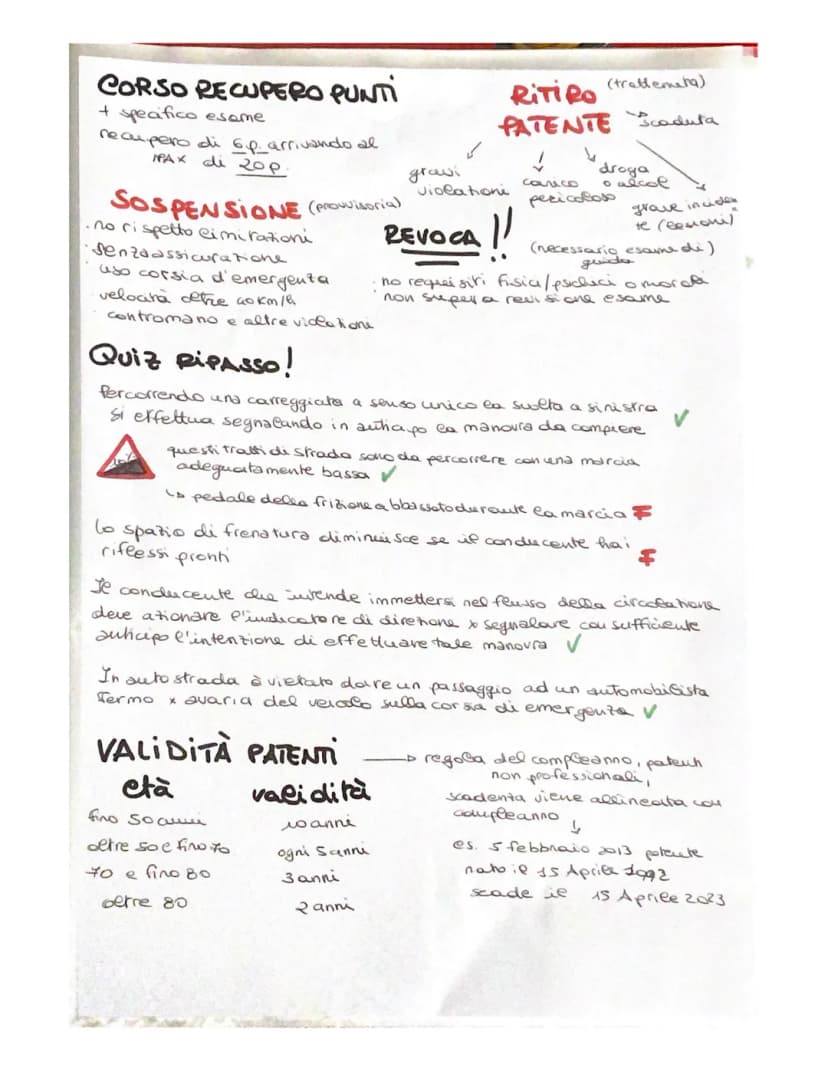 CORSO RECUPERO PUNTI
+ specifico esame
recupero di 6 p. arrivando al
MAX di 20 p.
RITIRO (trattenuta)
PATENTE
scaduta
gravi
violationi
carico
pericoloso
droga
o alcol
grave inciden
te (lesioni)
SOSPENSIONE (provvisoria)
· no rispetto limitazioni
· senza assicurazione
· uso corsia d'emergenza
· velocità oltre 40 km/h
· contromano e altre violazioni
REVOCA !!
(necessario esame di)
guida
· no requisiti fisici/psichici o morali
· non supera revisione esame
QUIZ RIPASSO!
Percorrendo una carreggiata a senso unico la svolta a sinistra
si effettua segnalando in anticipo la manovra da compiere ✓
10%
questi tratti di strada sono da percorrere con una marcia
adeguatamente bassa ✓
↳ pedale della frizione abbassato durante la marcia F
lo spazio di frenatura diminuisce se il conducente ha i
riflessi pronti F
Il conducente che intende immettersi nel flusso della circolazione
deve azionare l'indicatore di direzione x segnalare con sufficiente
anticipo l'intenzione di effettuare tale manovra ✓
In autostrada è vietato dare un passaggio ad un automobilista
fermo x avaria del veicolo sulla corsia di emergenza ✓
VALIDITÀ PATENTI → regola del compleanno, patenti
non professionali,
scadenza viene allineata con
compleanno
↓
es. 5 febbraio 2013 patente
nato il 15 Aprile 1992
scade il 15 Aprile 2023
età validità
fino 50 anni 10 anni
oltre 50 e fino 70 ogni 5 anni
70 e fino 80 3 anni
oltre 80 2 anni